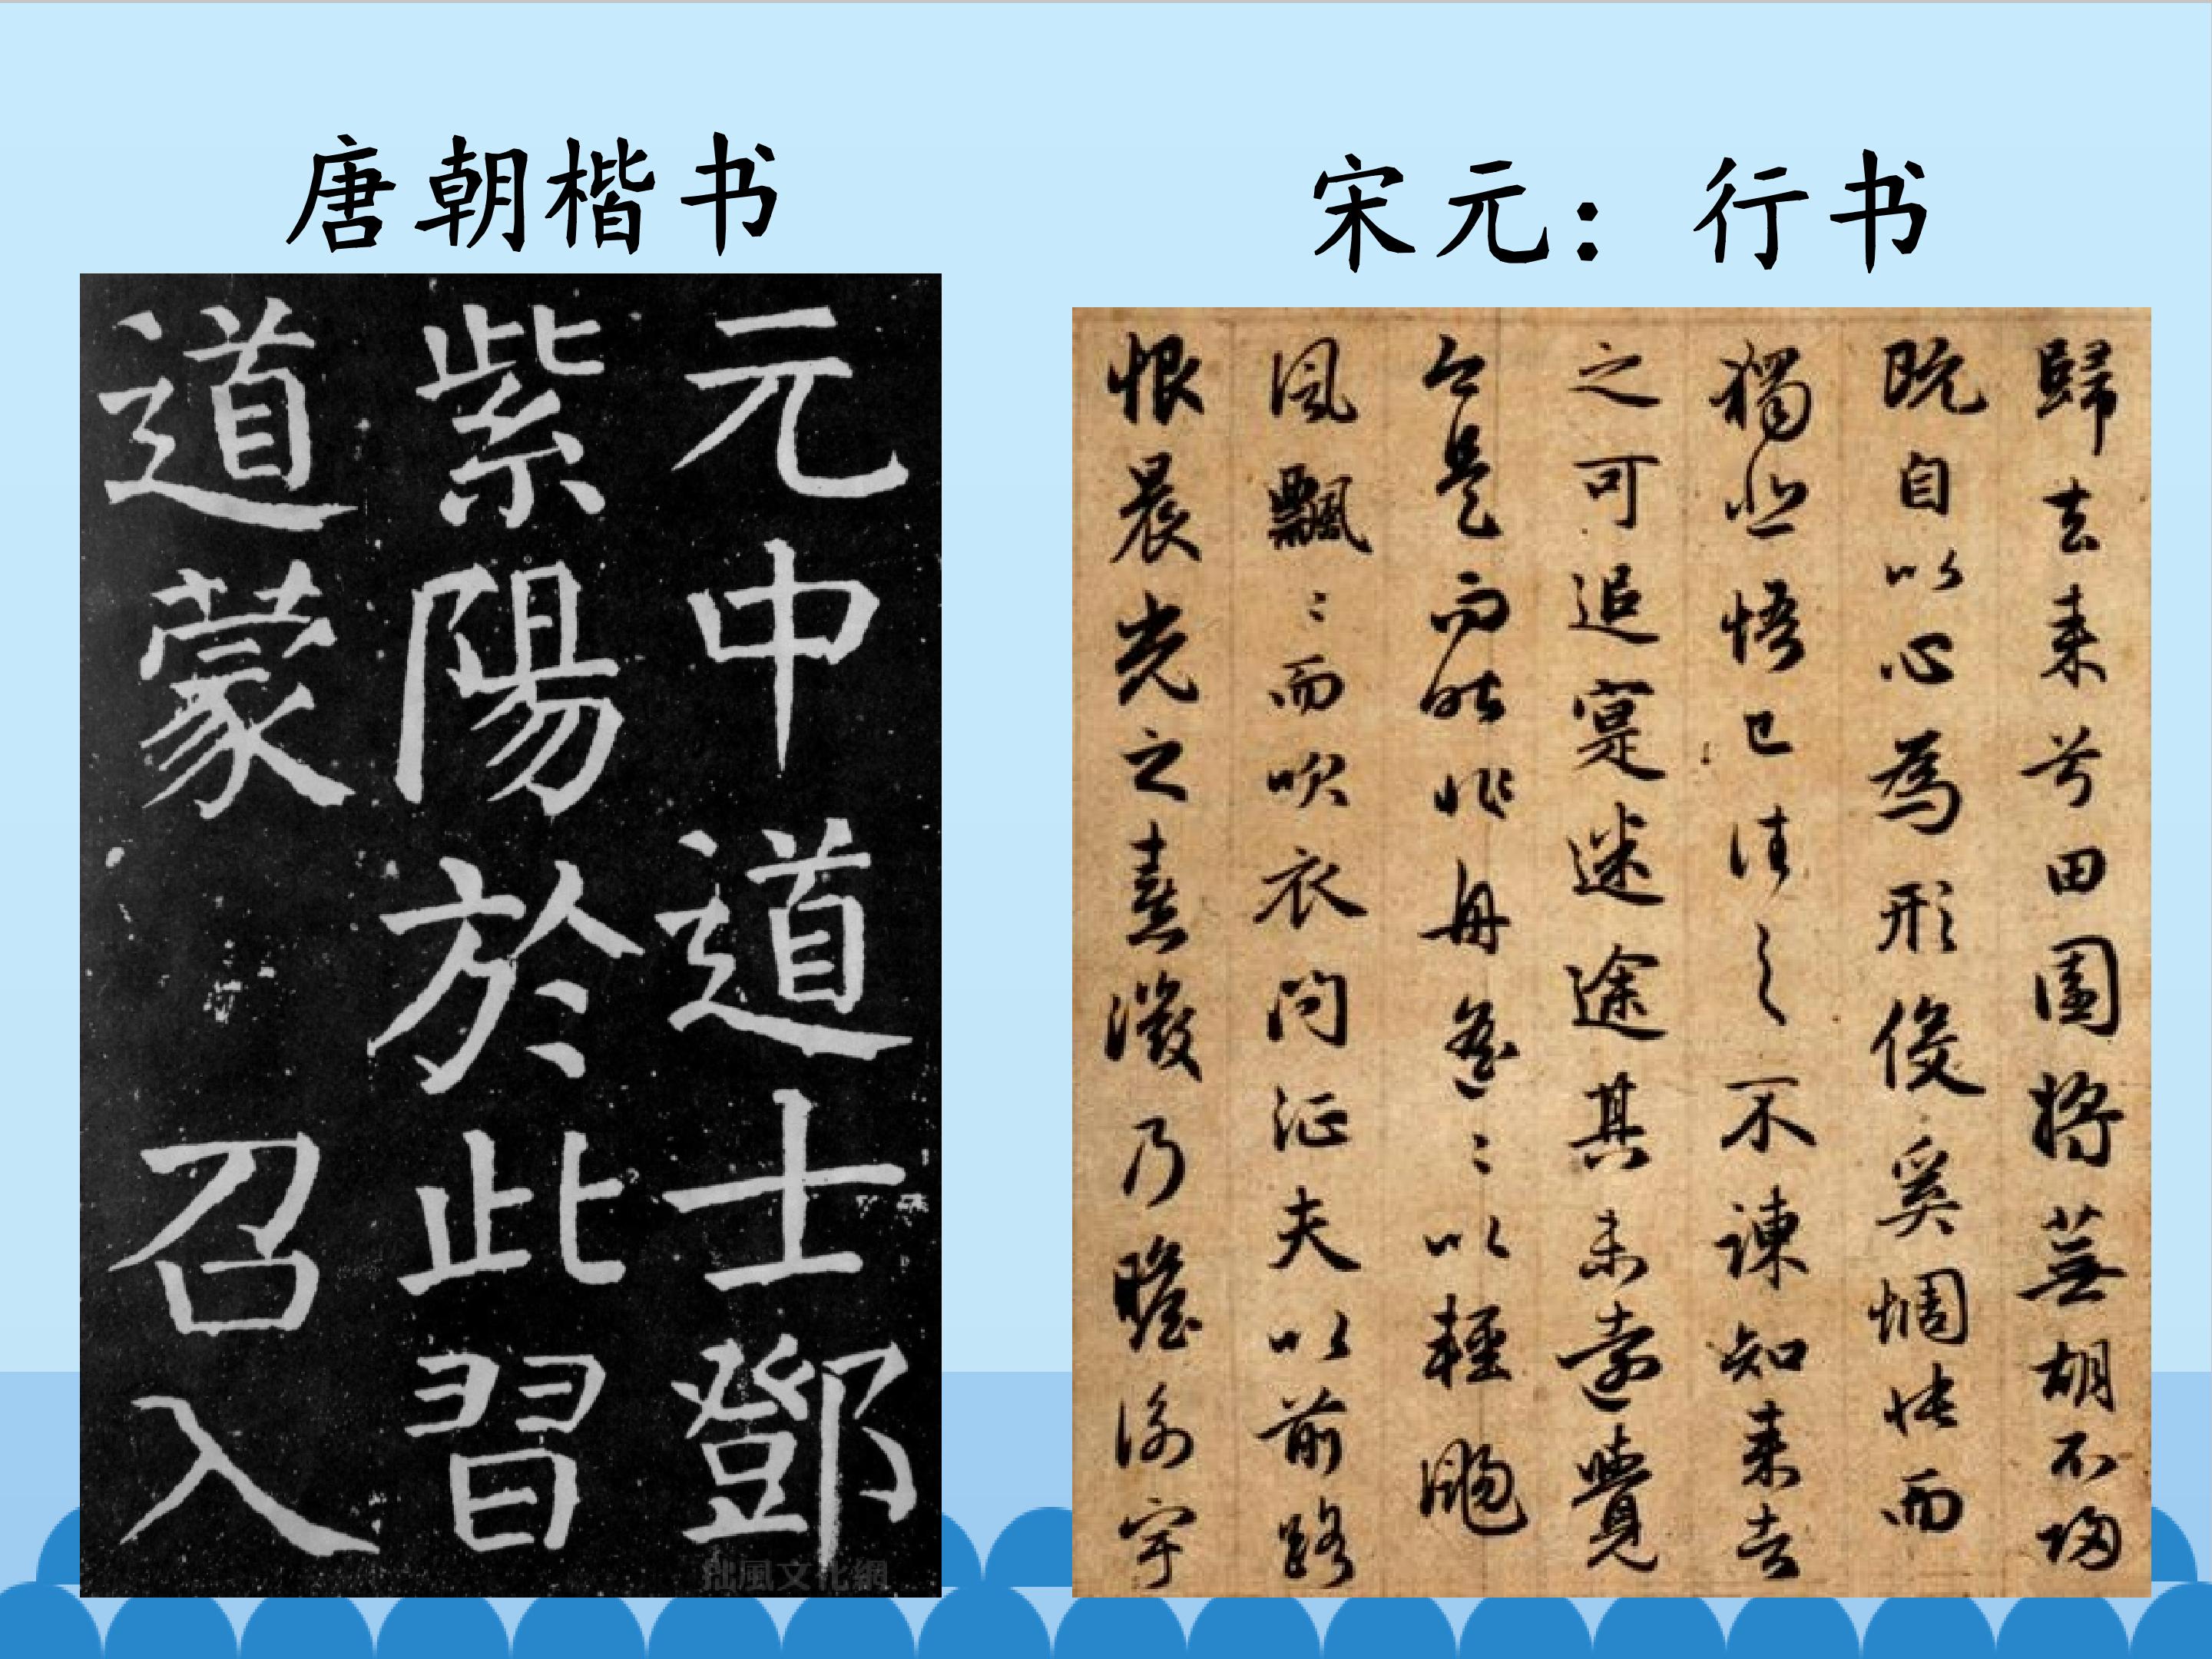 唐朝楷书
元中道士鄧
紫陽於此習
道蒙召入
拙風文化網
宋元：行书
歸去来兮田園将蕪胡不歸
既自以心為形役奚惆悵而
獨悲悟已往之不諫知来者
之可追寔迷途其未遠覺
今是而昨非舟遥ミ以輕颺
風飄ミ而吹衣问征夫以前路
恨晨光之熹微乃瞻衡宇